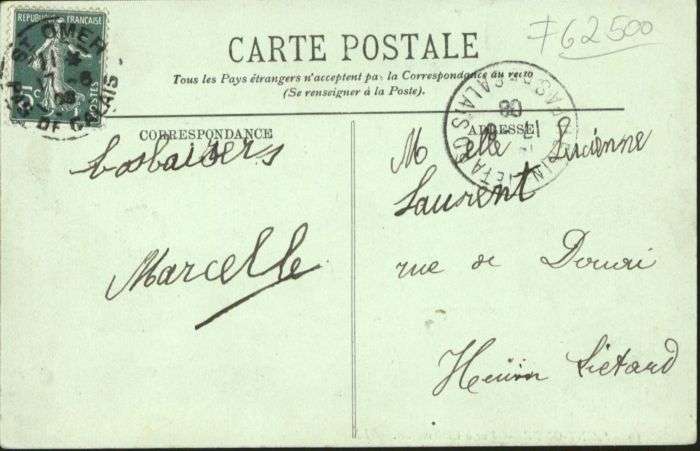 RÉPUBLIQUE FRANÇAISE
5c POSTES
ST OMER
11 * 17 - 6 08
PAS DE CALAIS
CARTE POSTALE
Tous les Pays étrangers n'acceptent pas la Correspondance au recto
(Se renseigner à la Poste).
≠62500
CORRESPONDANCE
bons baisers
Marcelle
ADRESSE
HÉNIN-LIÉTARD PAS-DE-CALAIS
17 08
Melle Lucienne
Laurent
rue de Douai
Hénin Liétard